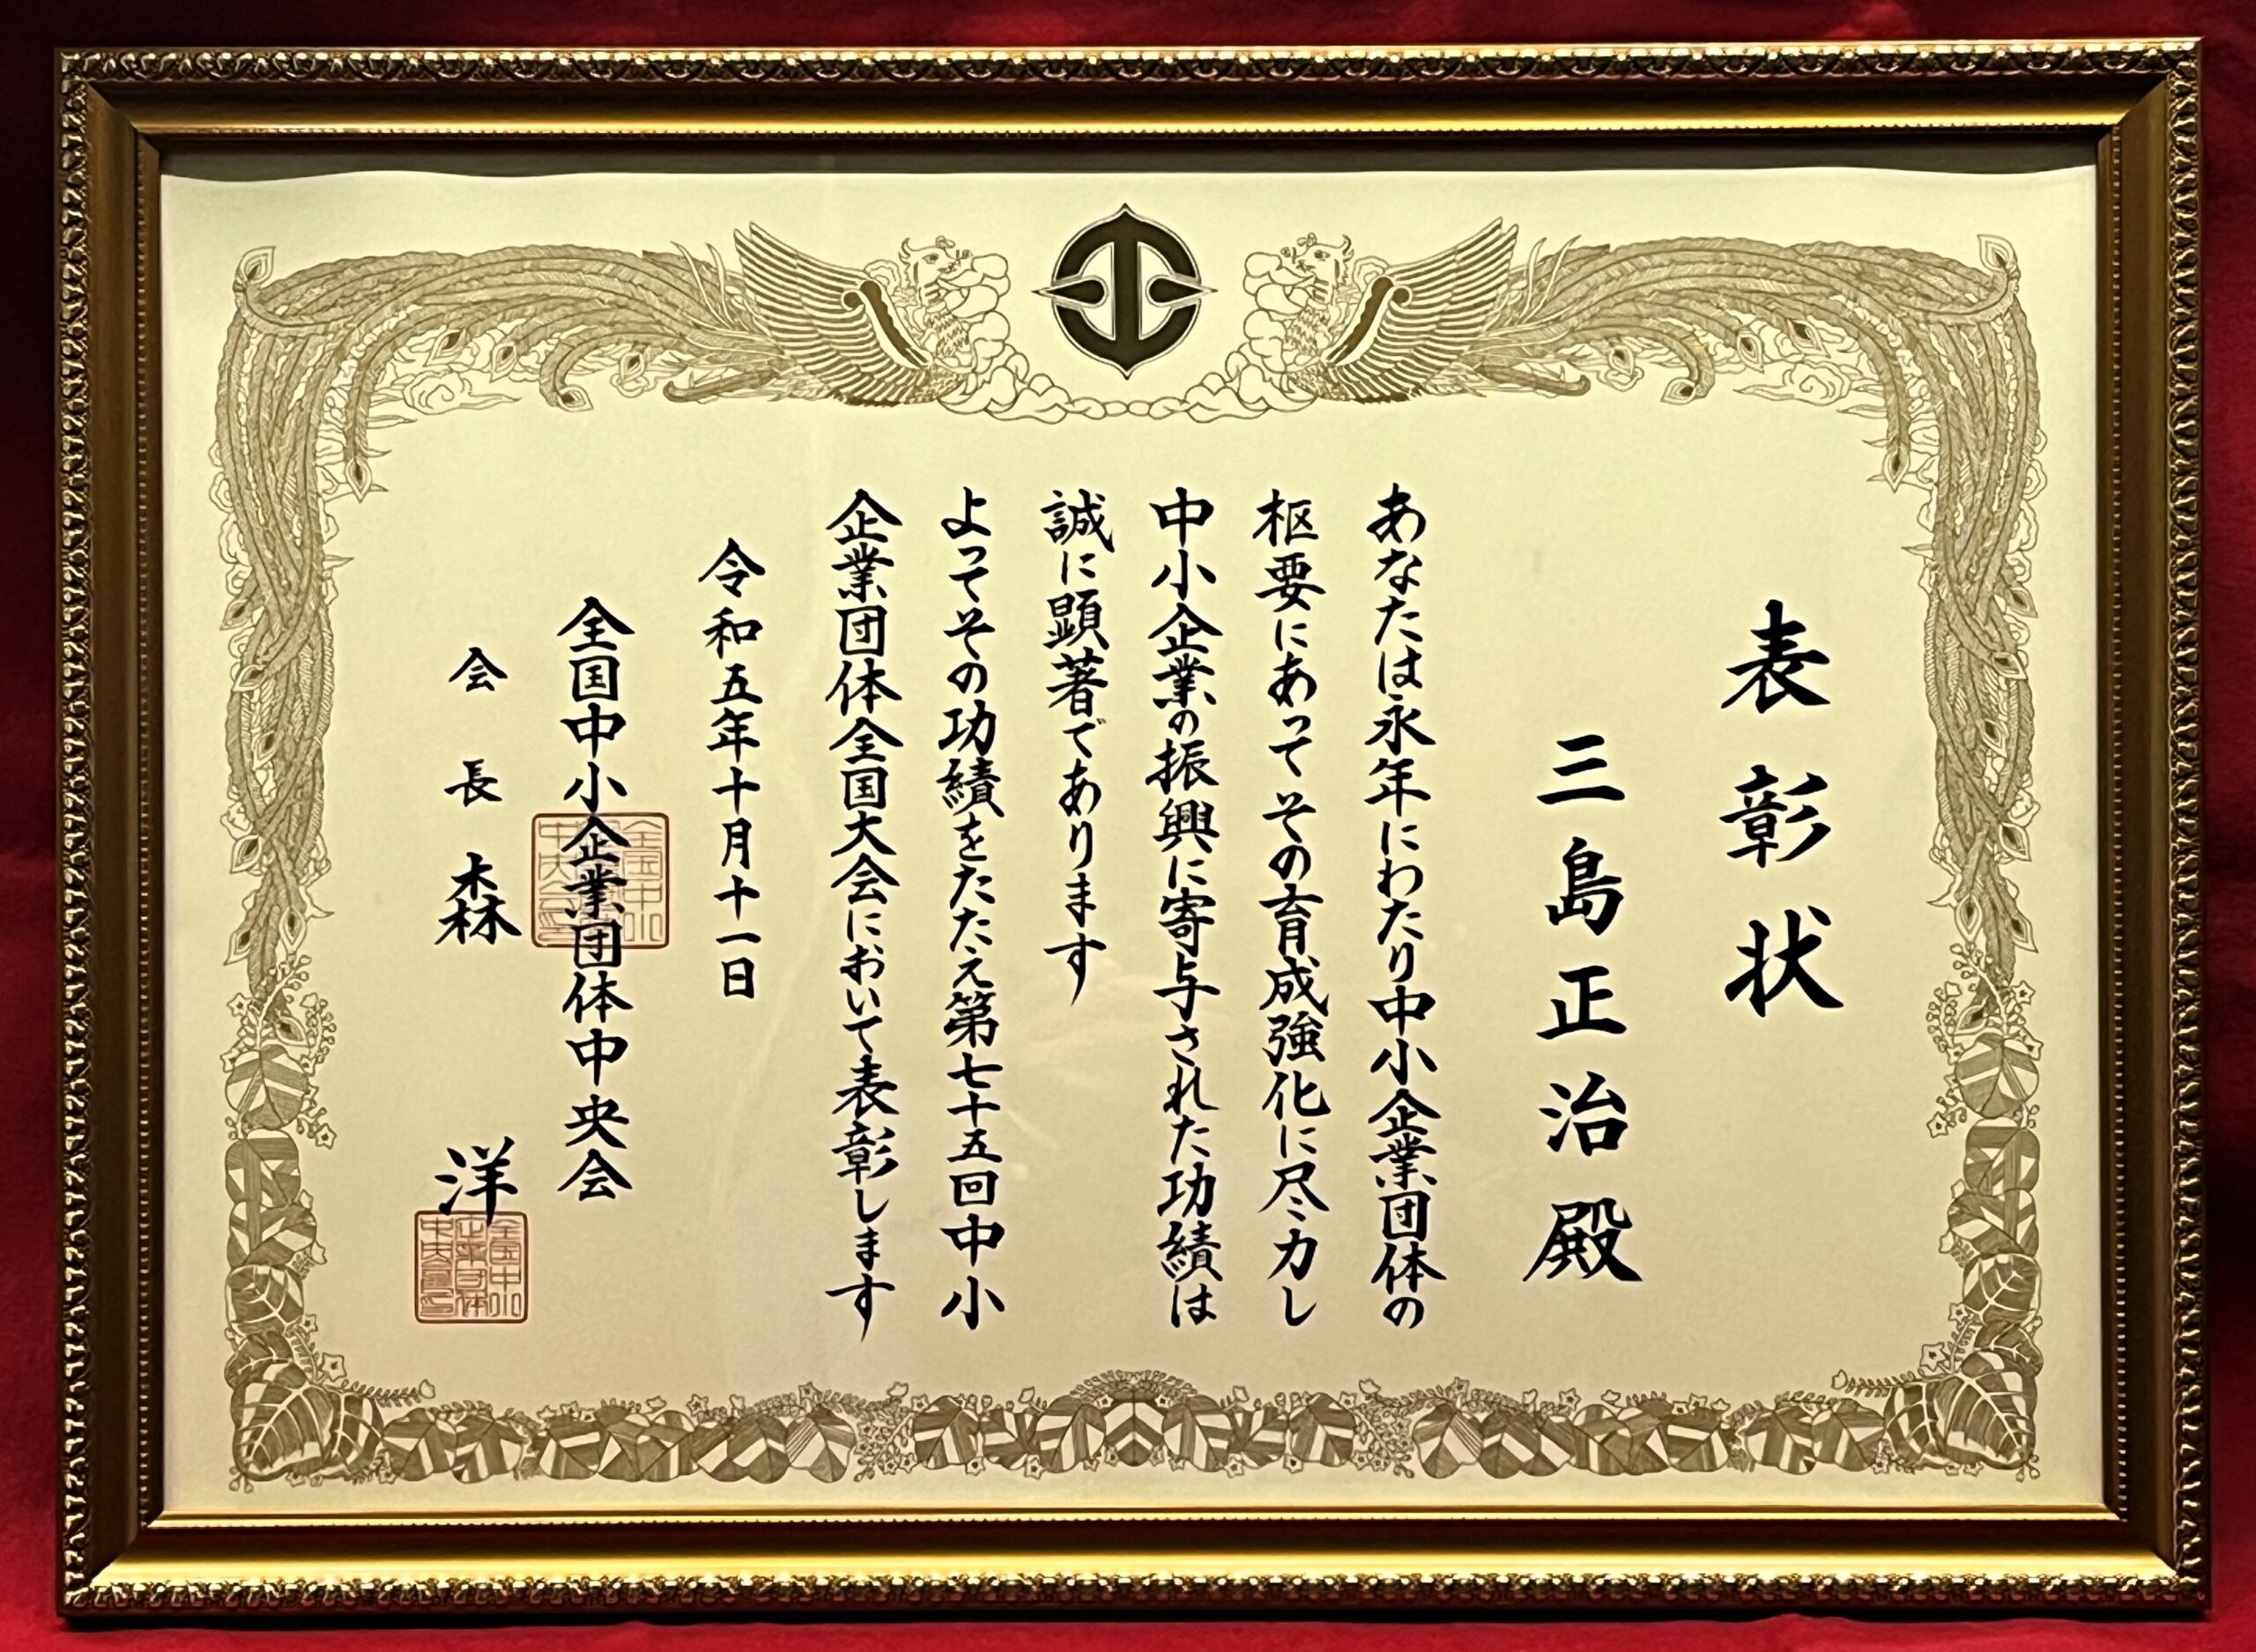 表彰状
三島正治殿
あなたは永年にわたり中小企業団体の
枢要にあってその育成強化に尽力し
中小企業の振興に寄与された功績は
誠に顕著であります
よってその功績をたたえ第七十五回中小
企業団体全国大会において表彰します
令和五年十月十一日
全国中小企業団体中央会
会長森洋